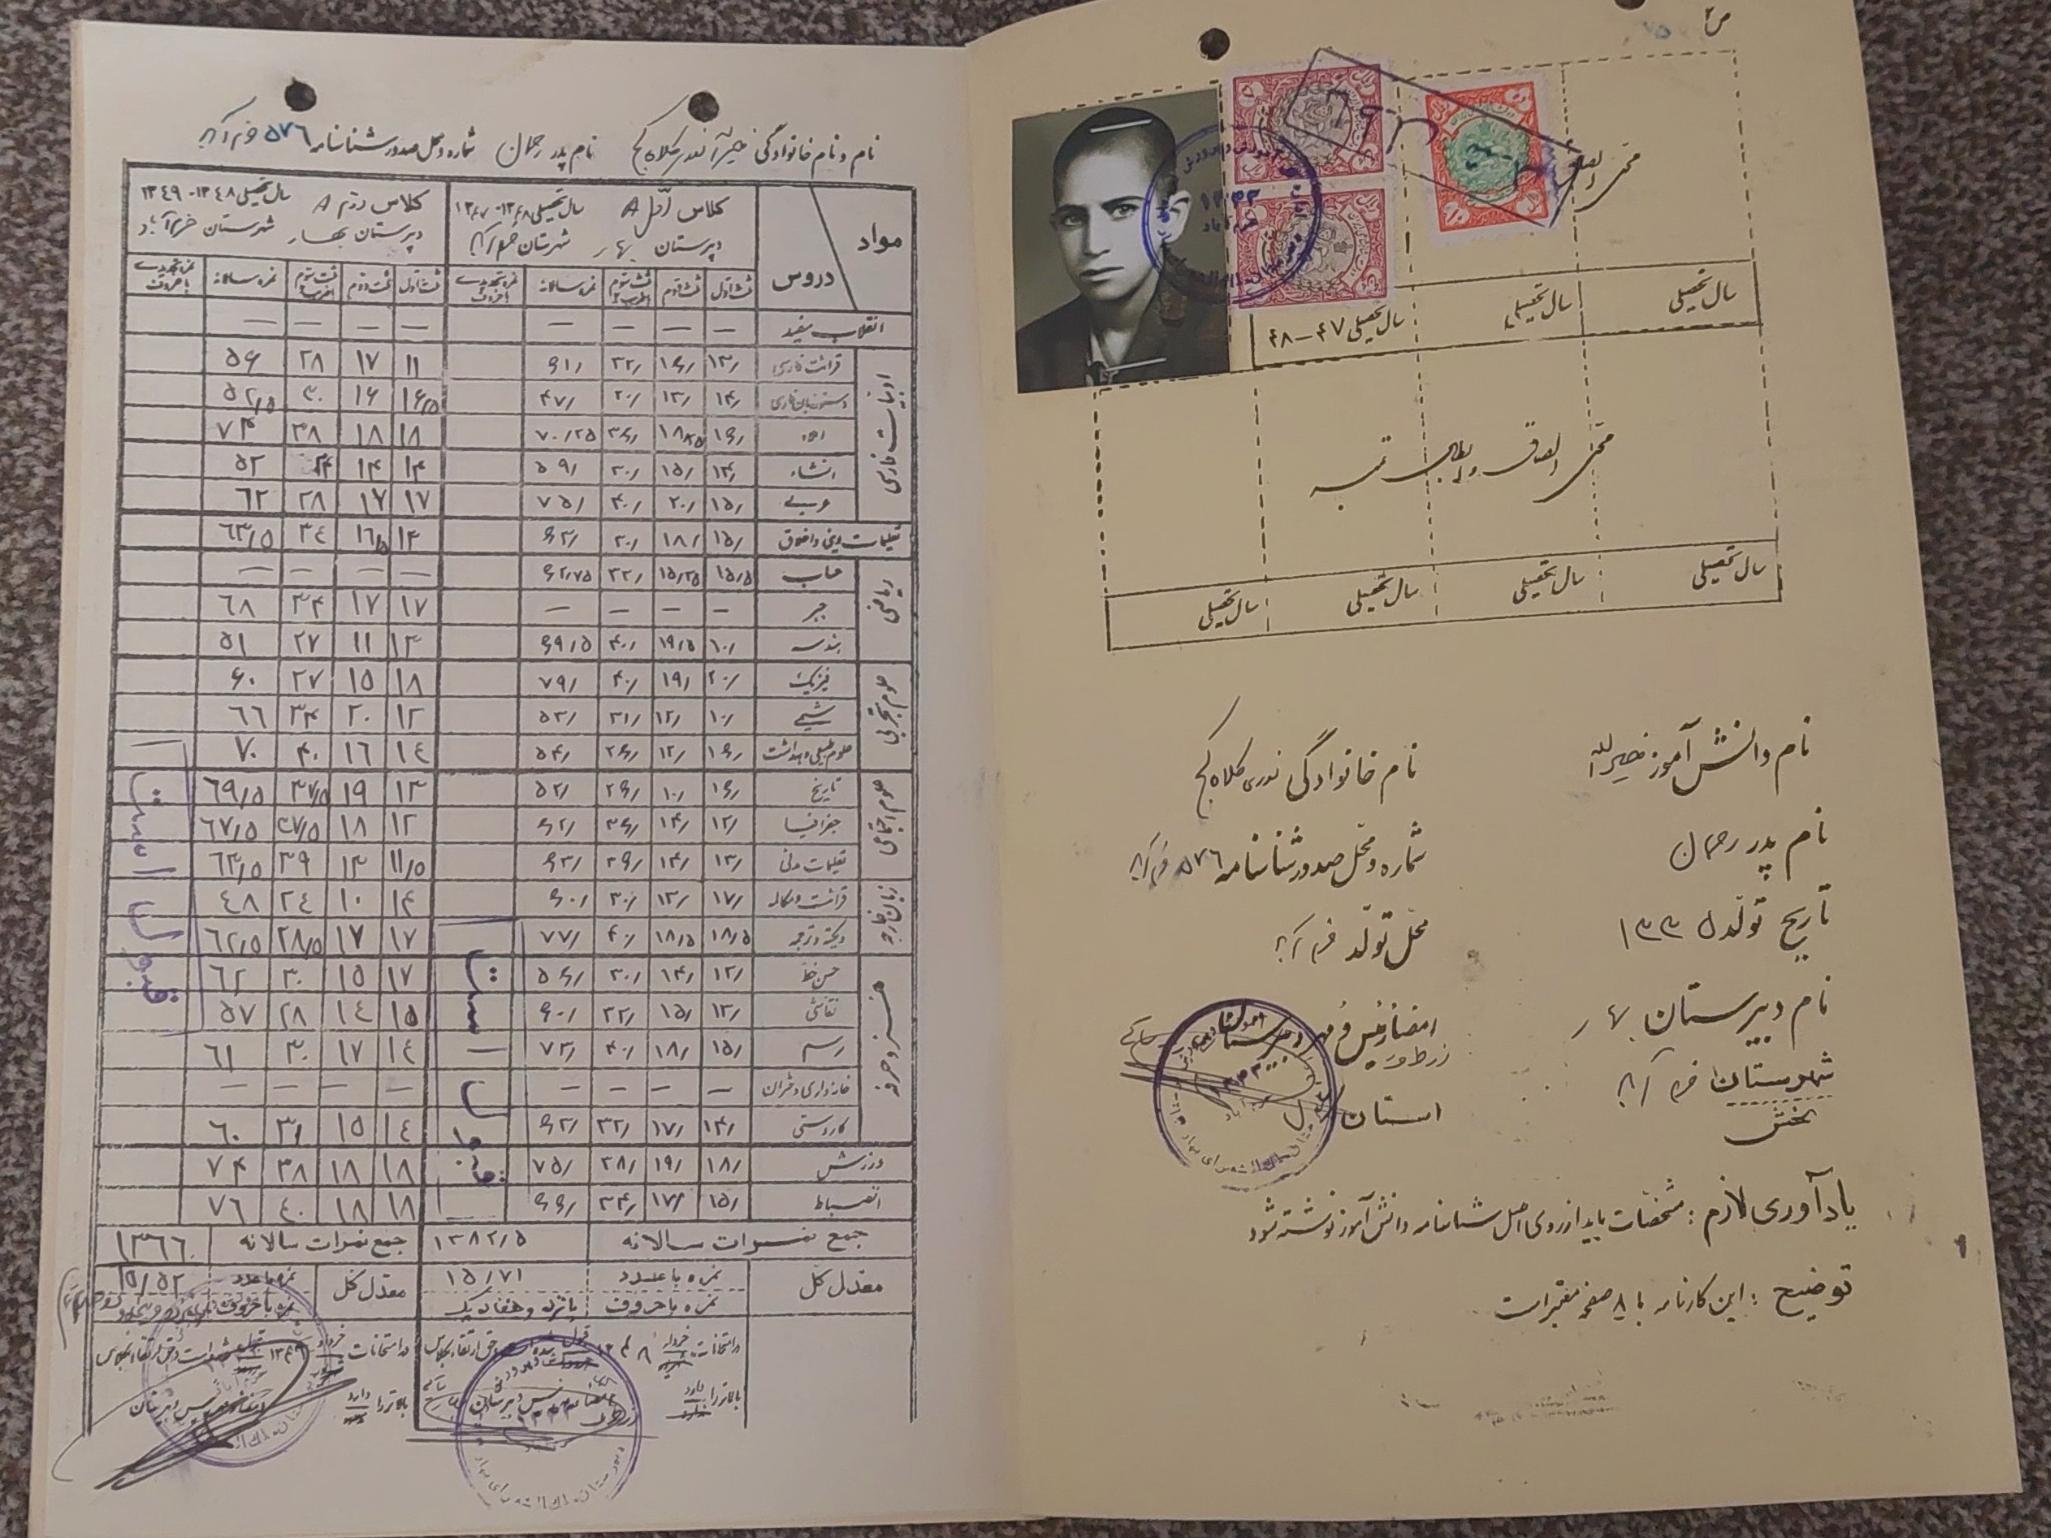 ص ۲
محل الصاق و ابطال تمبر
سال تحصیلی سال تحصیلی سال تحصیلی ۴۷-۴۸
محل الصاق و ابطال تمبر
سال تحصیلی سال تحصیلی سال تحصیلی سال تحصیلی
نام دانش آموز خیراله نام خانوادگی نذری کلاه کج
نام پدر رحمان شماره و محل صدور شناسنامه ۵۷۶ خرم آباد
تاریخ تولد ۱۳۳۵ محل تولد خرم آباد
نام دبیرستان بهار امضاء رئیس و مهر دبیرستان
شهرستان خرم آباد
بخش استان
یادآوری لازم : مشخصات باید از روی اصل شناسنامه دانش آموز نوشته شود
توضیح : این کارنامه با ۸ صفحه معتبر است
نام و نام خانوادگی نام پدر رحمان شماره و محل صدور شناسنامه ۵۷۶ خرم آباد
مواد دروس
کلاس اول A سال تحصیلی ۱۳۴۸-۱۳۴۷ کلاس دوم A سال تحصیلی ۱۳۴۸-۱۳۴۹
دبیرستان بهار شهرستان خرم آباد دبیرستان بهار شهرستان خرم آباد
ثلث اول ثلث دوم ثلث سوم نمره سالانه نمره تجدیدی با حروف ثلث اول ثلث دوم ثلث سوم نمره سالانه نمره تجدیدی با حروف
انقلاب سفید — — — — — — — —
ادبیات فارسی
قرائت فارسی ۱۳/ ۱۶/ ۳۲/ ۶۱/ ۱۱ ۱۷ ۲۸ ۵۶
دستور زبان فارسی ۱۴/ ۱۳/ ۲۰/ ۴۷/ ۱۶/۵ ۱۶ ۲۰ ۵۲/۵
املاء ۱۶/ ۱۸/۲۵ ۳۶/ ۷۰/۲۵ ۱۸ ۱۸ ۳۸ ۷۴
انشاء ۱۴/ ۱۵/ ۳۰/ ۵۹/ ۱۴ ۱۴ ۲۴ ۵۲
عربی ۱۵/ ۲۰/ ۴۰/ ۷۵/ ۱۷ ۱۷ ۲۸ ۶۲
تعلیمات دینی و اخلاق ۱۵/ ۱۸/ ۳۰/ ۶۳/ ۱۳ ۱۶/۵ ۳۴ ۶۳/۵
ریاضی
حساب ۱۵/۵ ۱۵/۲۵ ۳۲/ ۶۲/۷۵ — — — —
جبر — — — — ۱۷ ۱۷ ۳۴ ۶۸
هندسه ۱۰/ ۱۹/۵ ۴۰/ ۶۹/۵ ۱۳ ۱۱ ۲۷ ۵۱
علوم تجربی
فیزیک ۲۰/ ۱۹/ ۴۰/ ۷۹/ ۱۸ ۱۵ ۲۷ ۶۰
شیمی ۱۰/ ۱۲/ ۳۱/ ۵۳/ ۱۲ ۲۰ ۳۴ ۶۶
علوم طبیعی و بهداشت ۱۶/ ۱۲/ ۲۶/ ۵۴/ ۱۴ ۱۶ ۴۰ ۷۰
علوم اجتماعی
تاریخ ۱۶/ ۱۰/ ۲۶/ ۵۲/ ۱۳ ۱۹ ۳۷/۵ ۶۹/۵
جغرافیا ۱۲/ ۱۴/ ۳۶/ ۶۲/ ۱۲ ۱۸ ۳۷/۵ ۶۷/۵
تعلیمات مدنی ۱۳/ ۱۴/ ۳۶/ ۶۳/ ۱۱/۵ ۱۳ ۳۹ ۶۳/۵
زبان خارجه
قرائت و مکالمه ۱۷/ ۱۳/ ۳۰/ ۶۰/ ۱۴ ۱۰ ۲۴ ۴۸
دیکته و ترجمه ۱۸/۵ ۱۸/۵ ۴۰/ ۷۷/ ۱۷ ۱۷ ۲۸/۵ ۶۲/۵
هنر و حرفه
حسن خط ۱۲/ ۱۴/ ۳۰/ ۵۶/ ۱۷ ۱۵ ۳۰ ۶۲
نقاشی ۱۳/ ۱۵/ ۳۲/ ۶۰/ ۱۵ ۱۴ ۲۸ ۵۷
رسم ۱۵/ ۱۸/ ۴۰/ ۷۳/ ۱۴ ۱۷ ۳۰ ۶۱
خانه داری دختران — — — — — — — —
کاردستی ۱۴/ ۱۷/ ۳۲/ ۶۳/ ۱۴ ۱۵ ۳۱ ۶۰
ورزش ۱۸/ ۱۹/ ۳۸/ ۷۵/ ۱۸ ۱۸ ۳۸ ۷۴
انضباط ۱۵/ ۱۷/ ۳۴/ ۶۶/ ۱۸ ۱۸ ۴۰ ۷۶
قبول است قبول است
جمع نمرات سالانه ۱۳۸۲/۵ جمع نمرات سالانه ۱۳۶۶
معدل کل نمره با عدد ۱۵/۷۱ معدل کل نمره با عدد ۱۵/۵۲
نمره با حروف پانزده و هفتاد یک نمره با حروف
در امتحانات خرداد قبول حق ارتقاء بکلاس در امتحانات خرداد حق ارتقاء بکلاس
بالاتر را دارد بالاتر را دارد
امضاء و مهر رئیس دبیرستان